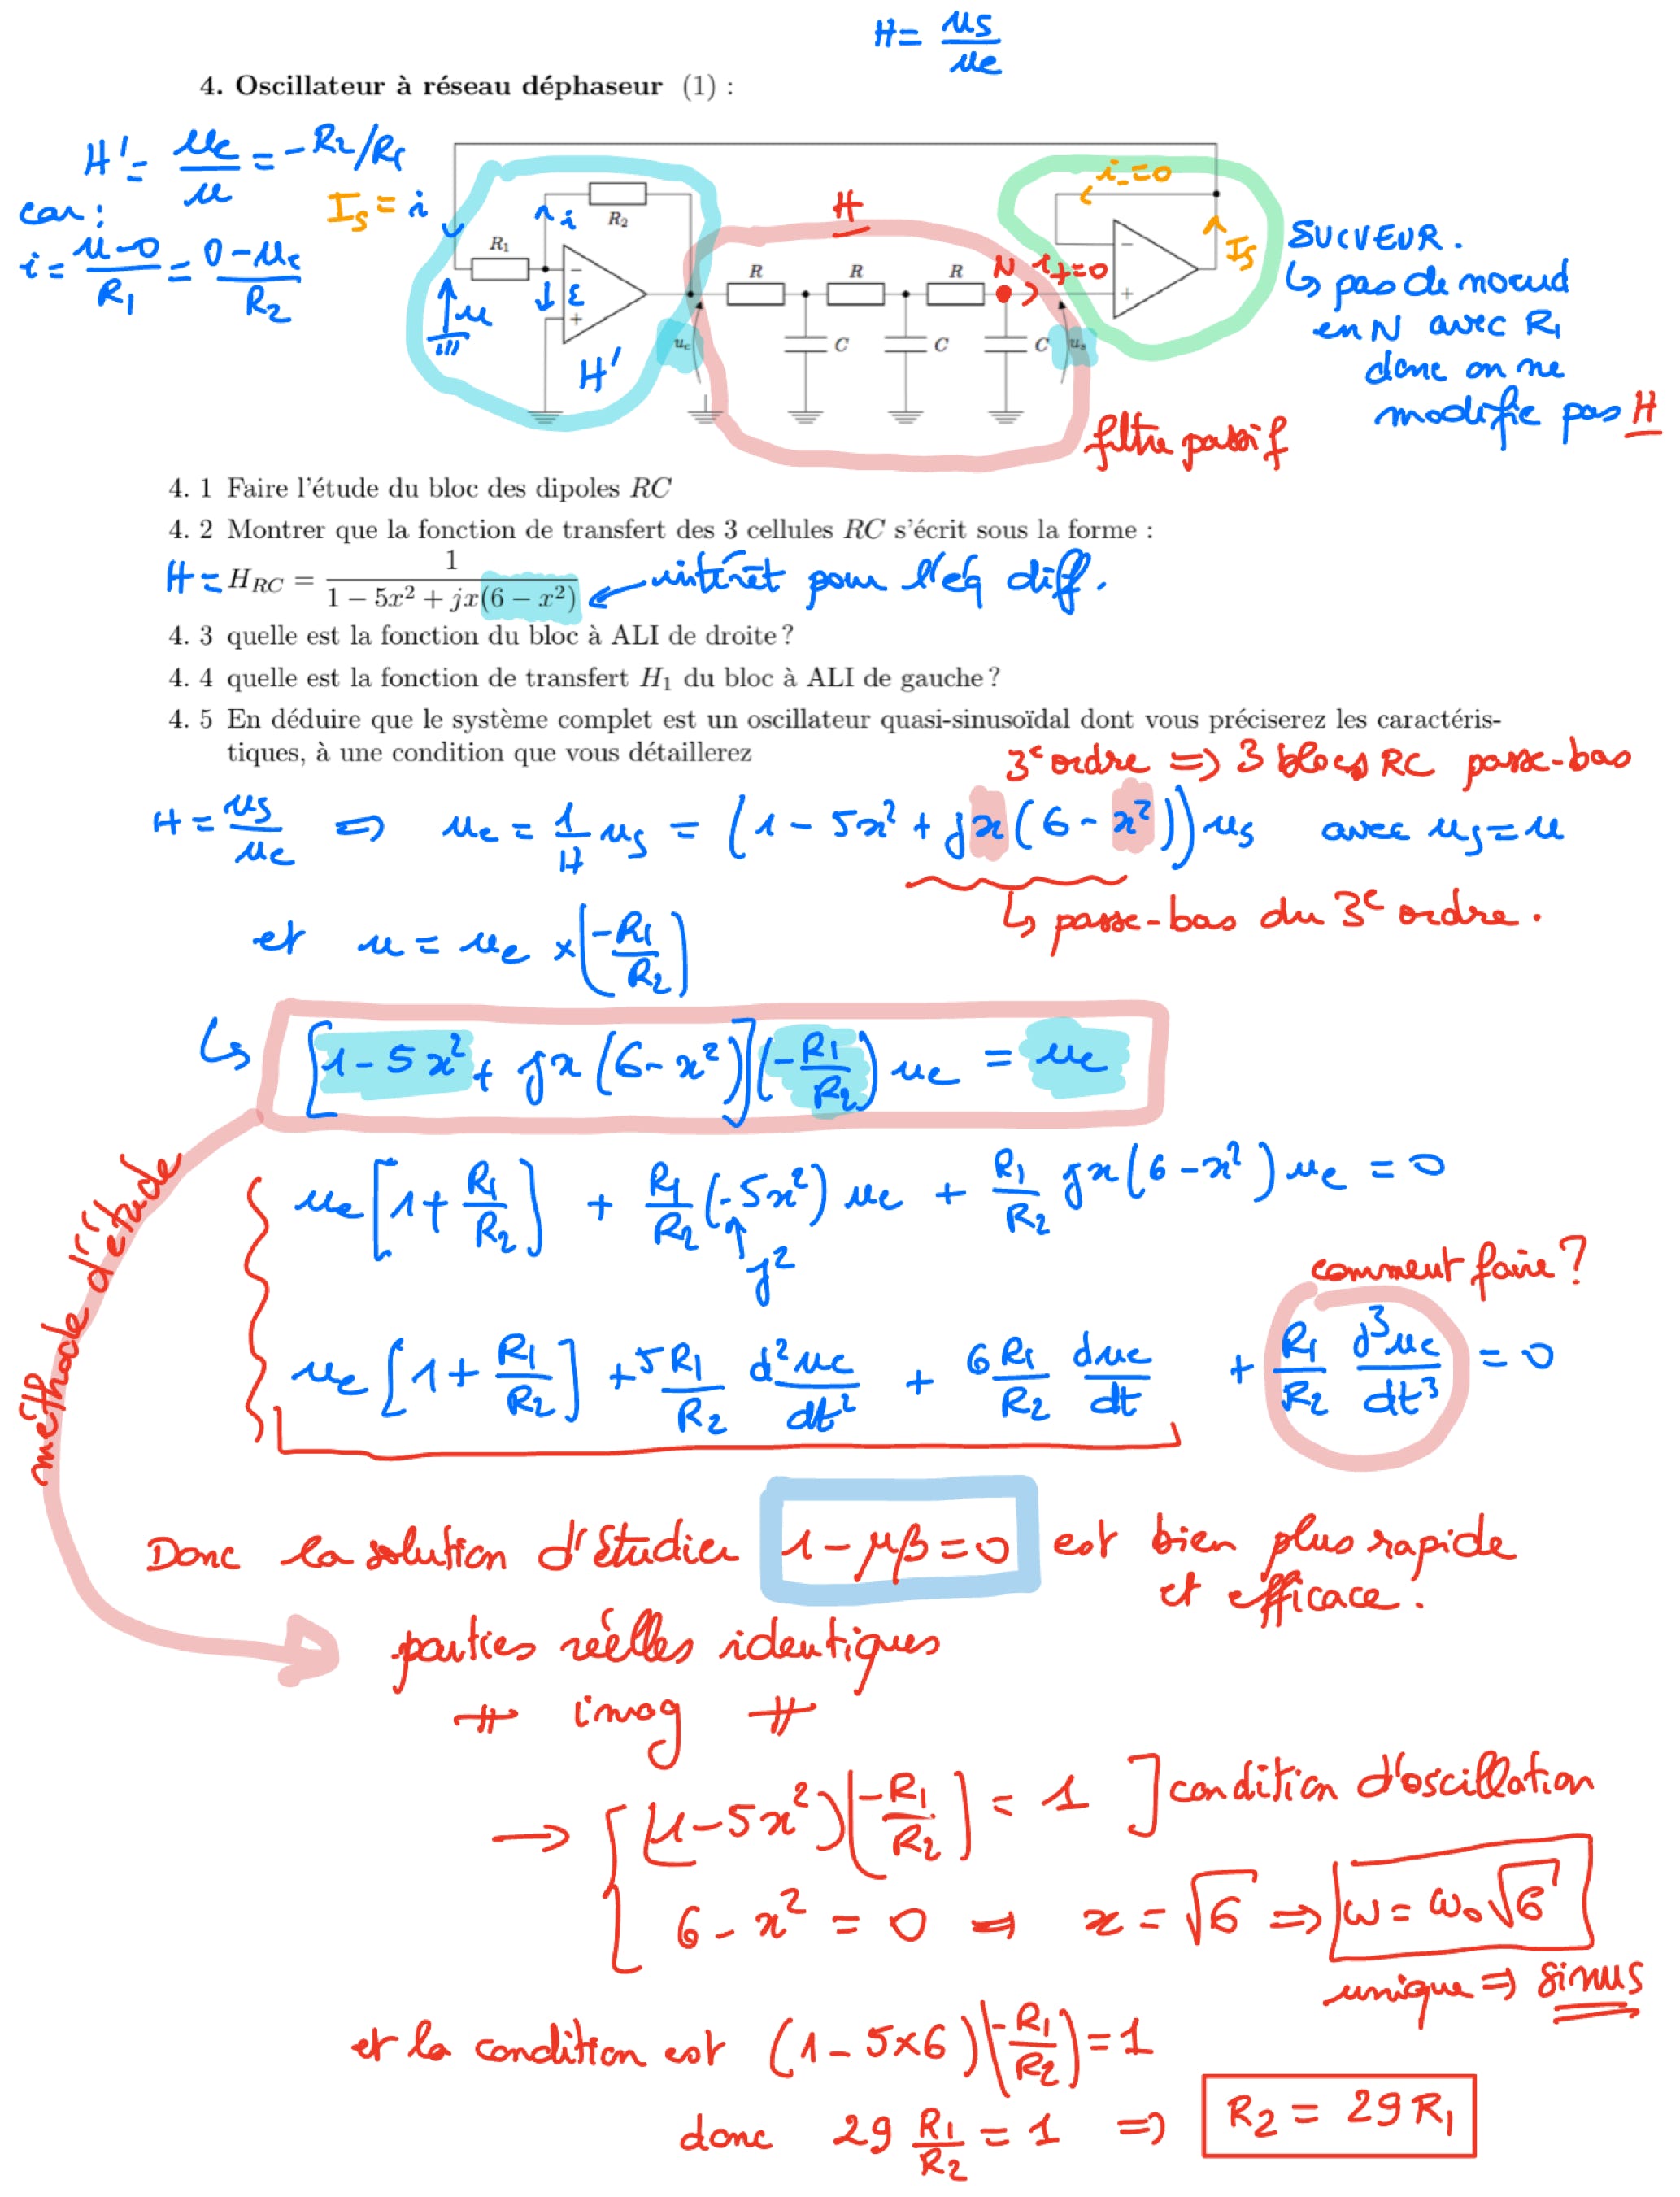 H = us/ue
4. Oscillateur à réseau déphaseur (1) :
H' = ue/u = -R2/R1
car :
i = (u-0)/R1 = (0-ue)/R2
Is = i
i
R2
R1
ε
u
H'
ue
H
R R R
N i+=0
C C C
us
i-=0
Is
filtre passif
SUIVEUR.
↳ pas de noeud
en N avec R1
donc on ne
modifie pas H
4. 1 Faire l'étude du bloc des dipoles RC
4. 2 Montrer que la fonction de transfert des 3 cellules RC s'écrit sous la forme :
H = HRC = 1/(1 − 5x² + jx(6 − x²)) ← intérêt pour l'éq diff.
4. 3 quelle est la fonction du bloc à ALI de droite ?
4. 4 quelle est la fonction de transfert H1 du bloc à ALI de gauche ?
4. 5 En déduire que le système complet est un oscillateur quasi-sinusoïdal dont vous préciserez les caractéris-
tiques, à une condition que vous détaillerez
3e ordre => 3 blocs RC passe-bas
H = us/ue ⇔ ue = 1/H us = (1 - 5x² + jx(6 - x²)) us avec us = u
↳ passe-bas du 3e ordre.
et u = ue × (-R1/R2)
↳ [1 - 5x² + jx(6 - x²)](-R1/R2) ue = ue
méthode d'étude
ue[1 + R1/R2] + R1/R2 (-5x²) ue + R1/R2 jx(6 - x²) ue = 0
j²
comment faire ?
ue[1 + R1/R2] + 5R1/R2 d²ue/dt² + 6R1/R2 due/dt + R1/R2 d³ue/dt³ = 0
Donc la solution d'étudier 1 - μβ = 0 est bien plus rapide
et efficace.
parties réelles identiques
// imag //
→ [(1 - 5x²)(-R1/R2) = 1 ] condition d'oscillation
6 - x² = 0 ⇒ x = √6 ⇒ ω = ω0√6
unique ⇒ sinus
et la condition est (1 - 5×6)(-R1/R2) = 1
donc 29 R1/R2 = 1 ⇒ R2 = 29 R1